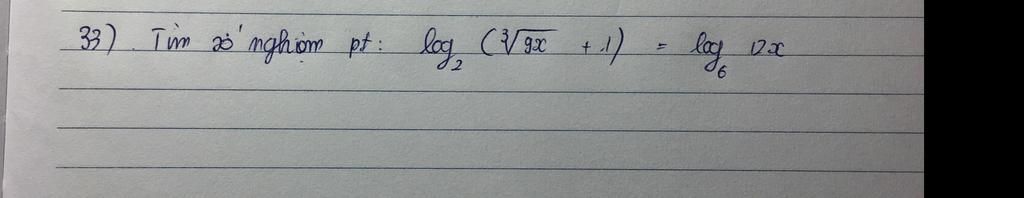 33) Tìm số nghiệm pt: log₂ (∛9x + 1) = log₆ 12x